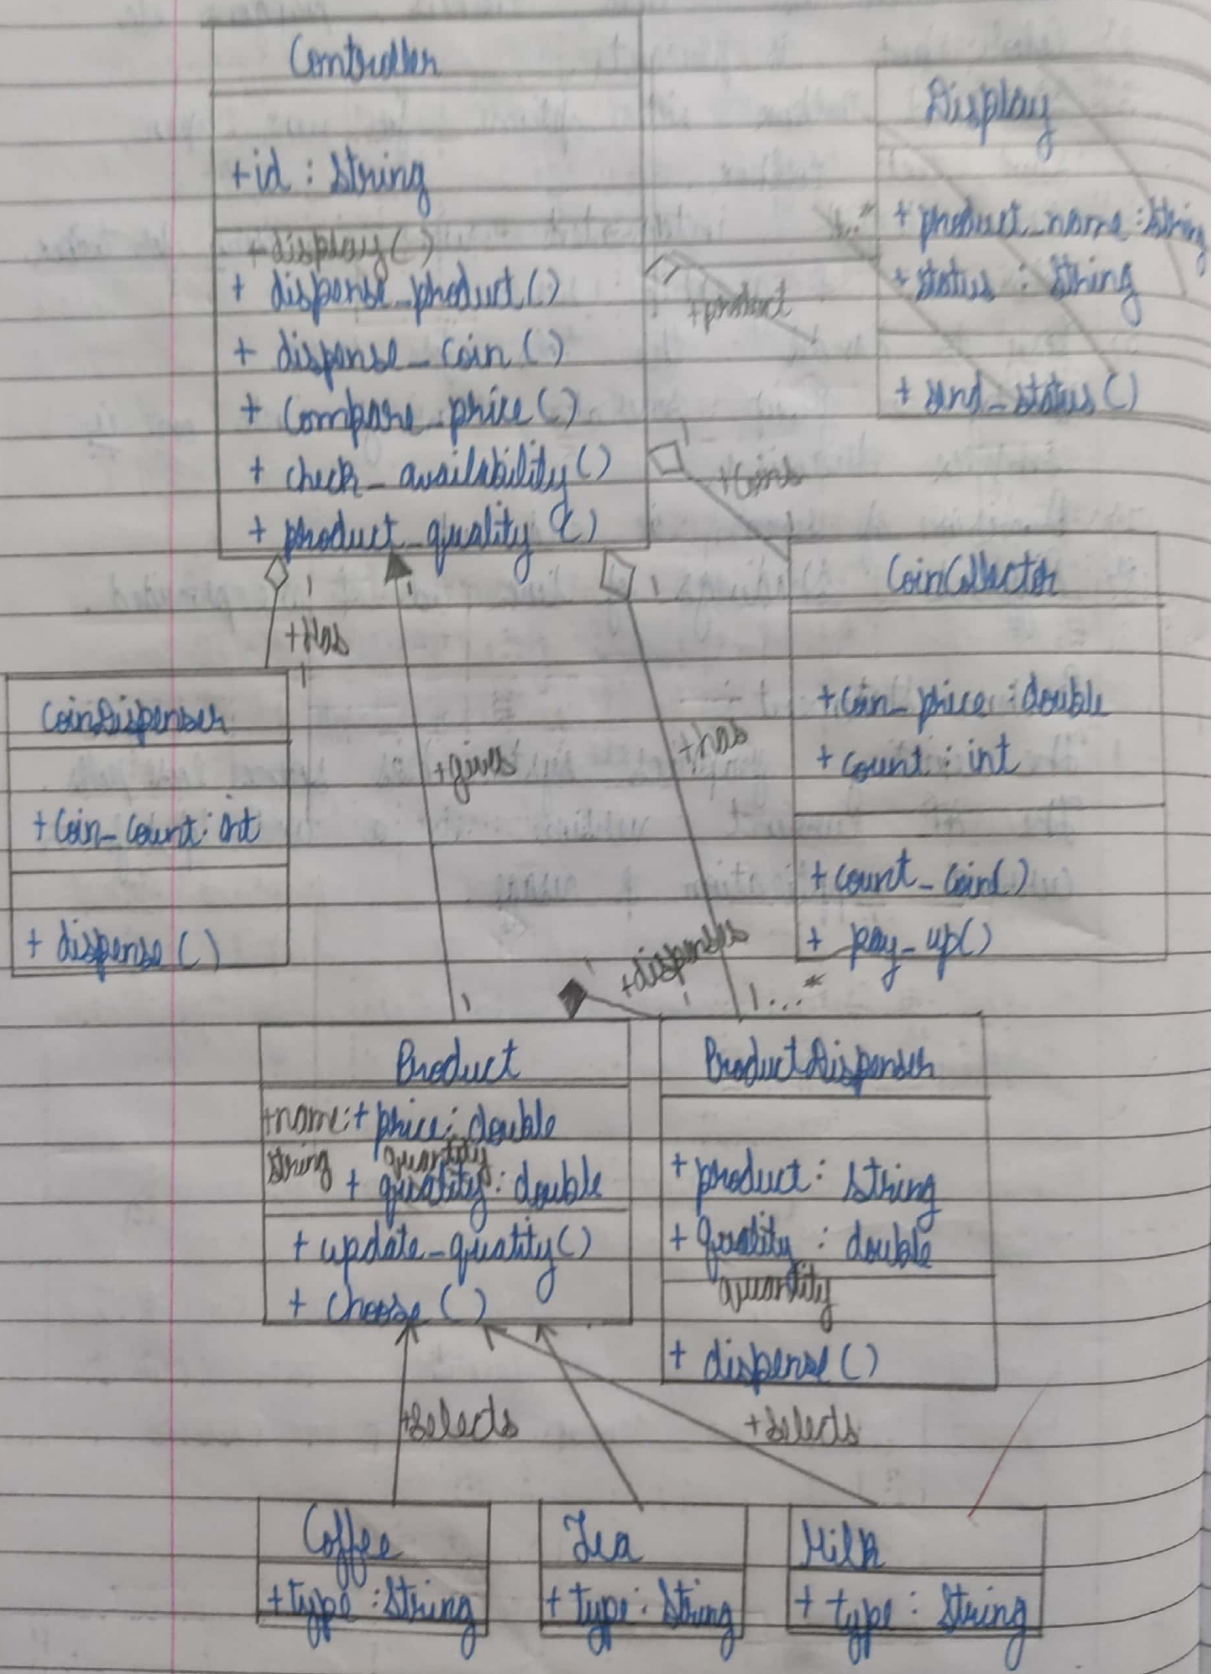 Controller
+id : String
+display()
+ dispense_product()
+ dispense_coin()
+ compare_price()
+ check_availability()
+ product_quality()
Display
+ product_name : String
+ status : String
+ send_status()
1..*
+product
1
+coins
CoinCollector
+coin_price : double
+ count : int
+ count_coin()
+ pay_up()
1
+Has
1
CoinDispenser
+coin_count : int
+ dispense()
1
+gives
1
1
+has
1...*
1
+dispenses
1
Product
+name: + price : double
string quantity
+ quality : double
+ update_quatity()
+ choose()
ProductDispenser
+ product : String
+ quality : double
quantity
+ dispense()
+selects
+selects
Coffee
+type : String
Tea
+ type : String
Milk
+ type : String